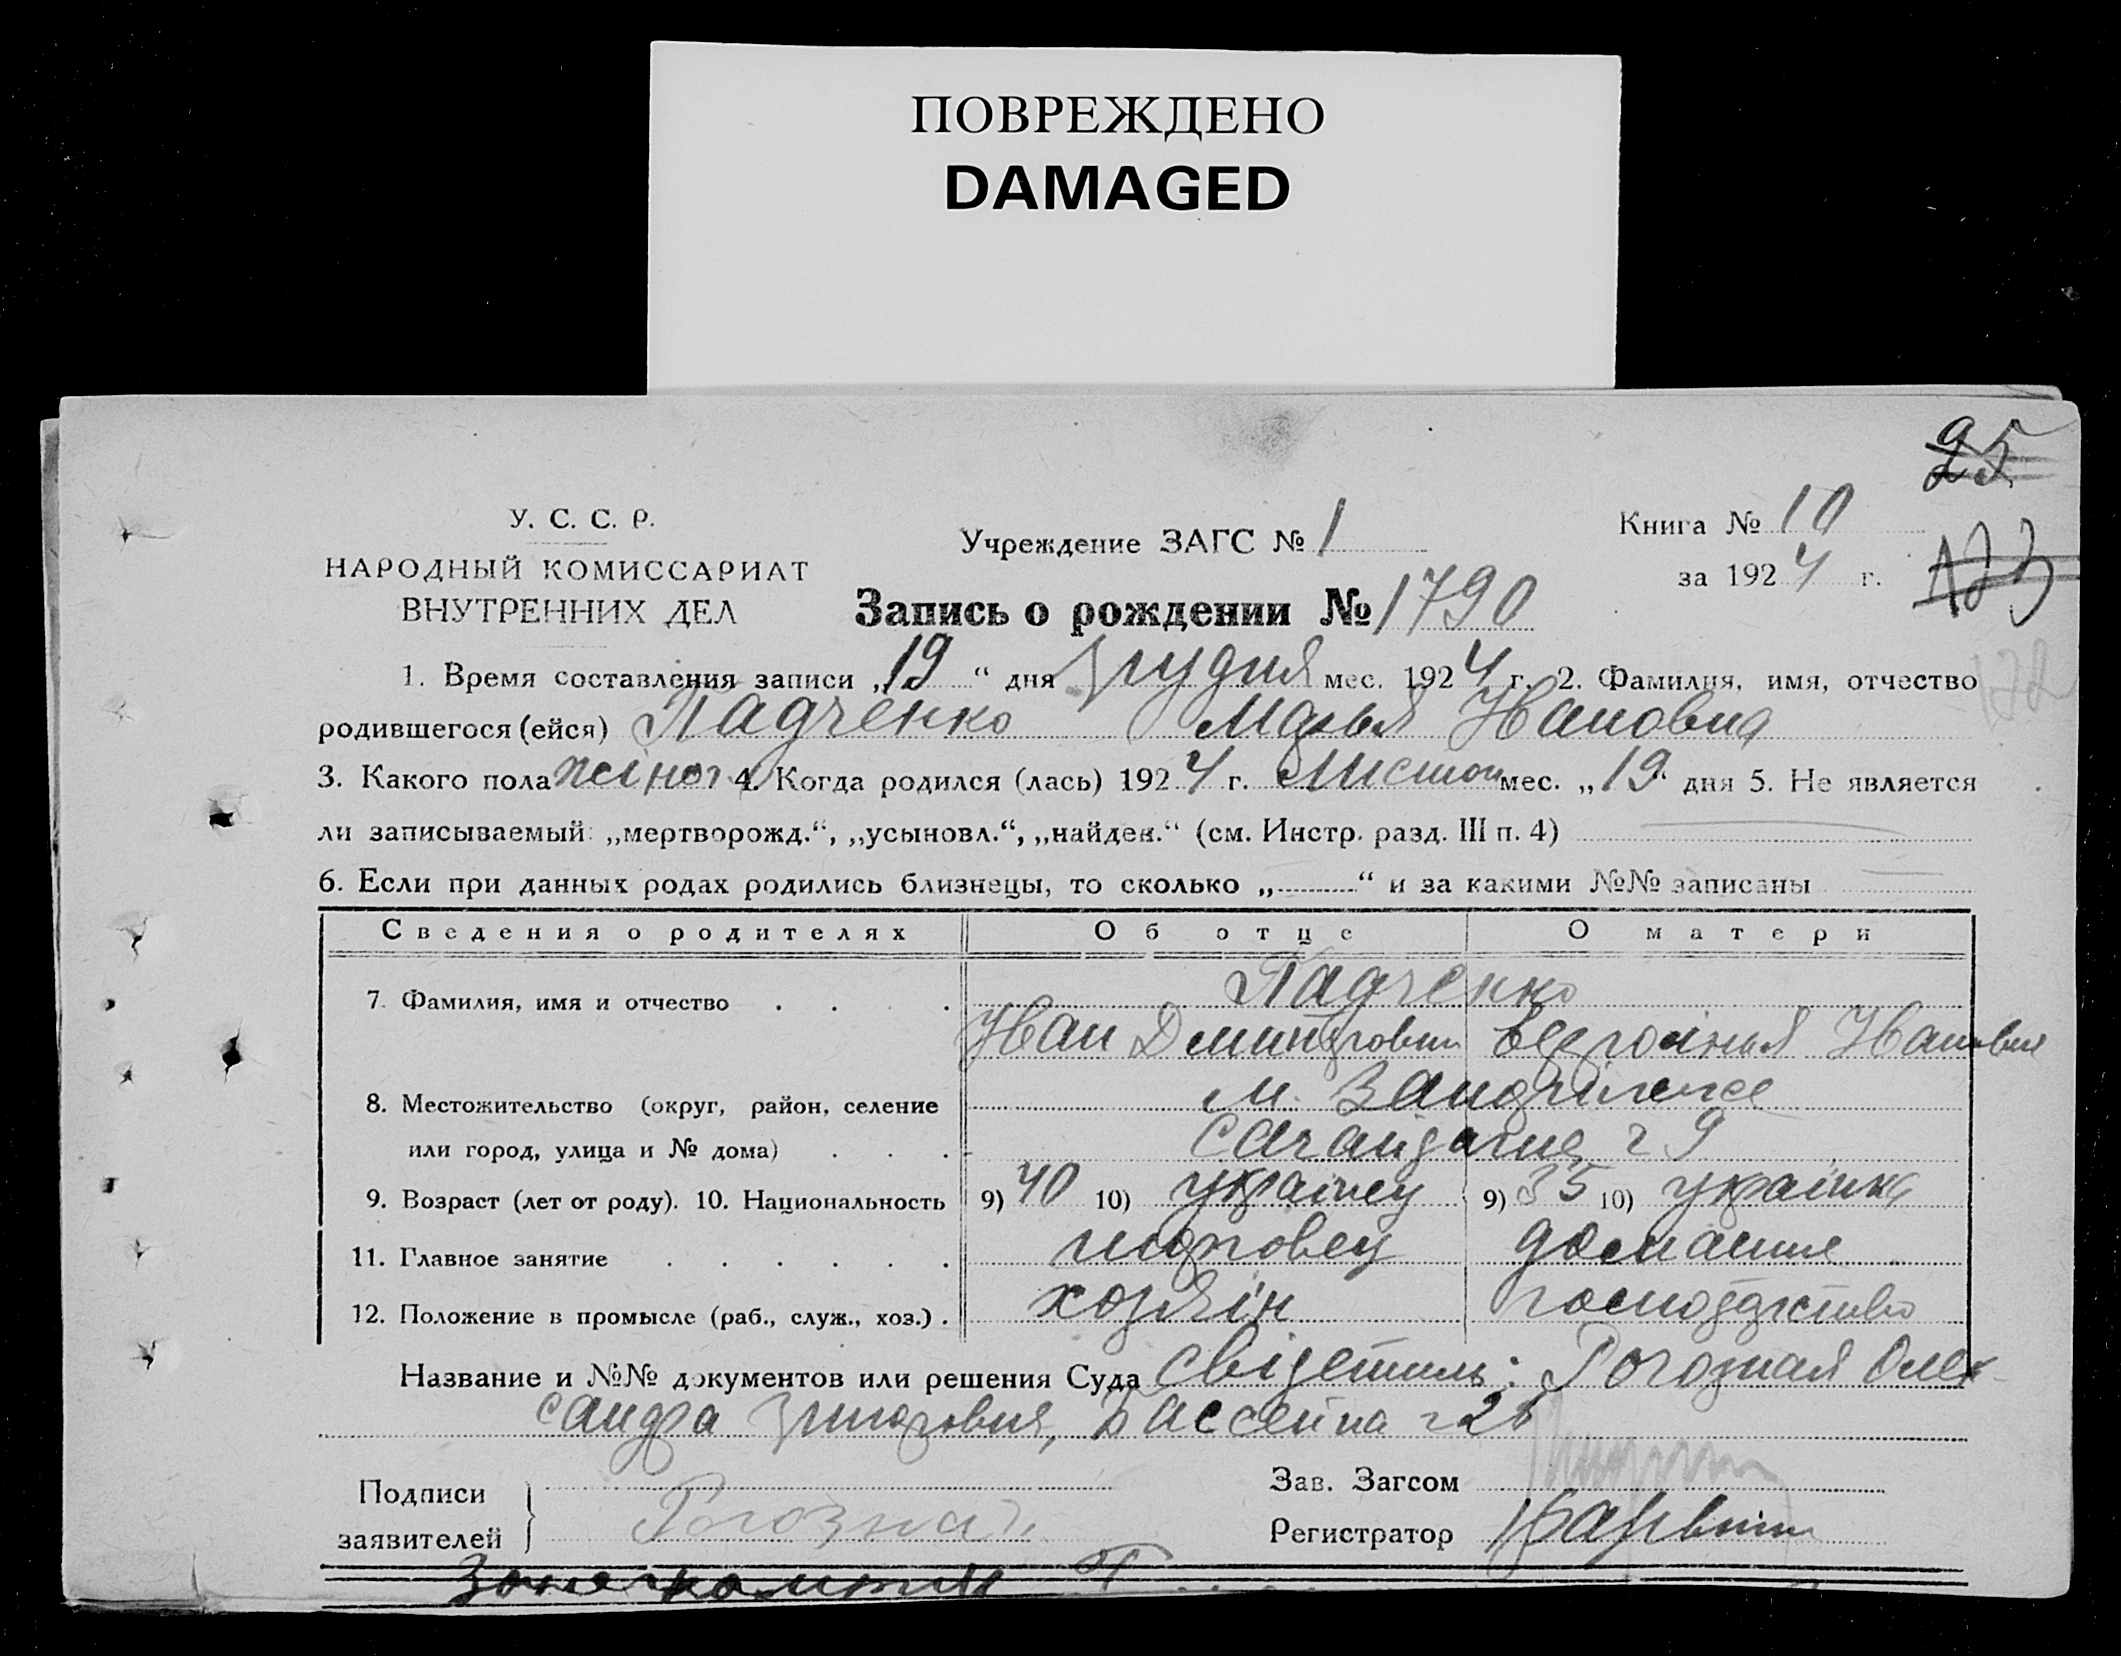 ПОВРЕЖДЕНО
DAMAGED
25
У. С. С. Р.
Учреждение ЗАГС № 1
Книга № 10
НАРОДНЫЙ КОМИССАРИАТ
за 1924 г.
123
ВНУТРЕННИХ ДЕЛ
Запись о рождении № 1790
172
1. Время составления записи „19“ дня грудня мес. 1924 г. 2. Фамилия, имя, отчество
родившегося (ейся) Падченко Марья Ивановна
3. Какого пола жіноч 4. Когда родился (лась) 1924 г. Листоп мес. „19“ дня 5. Не является
ли записываемый „мертворожд.“, „усыновл.“, „найден.“ (см. Инстр. разд. III п. 4)
6. Если при данных родах родились близнецы, то сколько „ “ и за какими №№ записаны
Сведения о родителях Об отце О матери
7. Фамилия, имя и отчество Падченко
Иван Дмитрович Ивановна
8. Местожительство (округ, район, селение м. Запоріжже
или город, улица и № дома) 9
9. Возраст (лет от роду). 10. Национальность 9) 40 10) українец 9) 35 10) українка
11. Главное занятие домашне
12. Положение в промысле (раб., служ., хоз.) хозяїн господарство
Название и №№ документов или решения Суда свідетиль: Рогозная Олек-
сандра Григоровна, Бассейна
Подписи
заявителей
Рогозная
Зав. Загсом
Регистратор